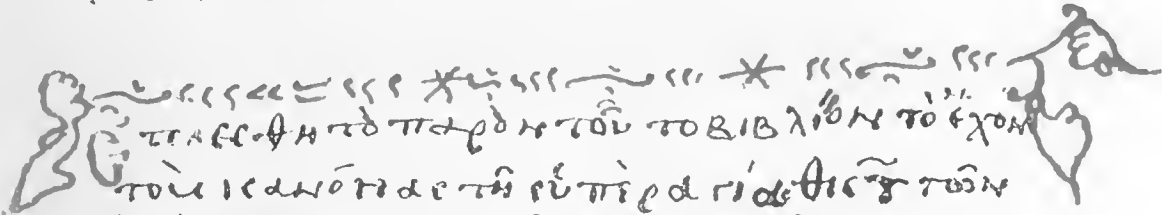 Ἐτελεσθη τὸ παρὸν τοῦτο βιβλίον τὸ ἔχον
τοὺς κανόνας τῆς ὑπεραγίας θ(εοτό)κου τῶν